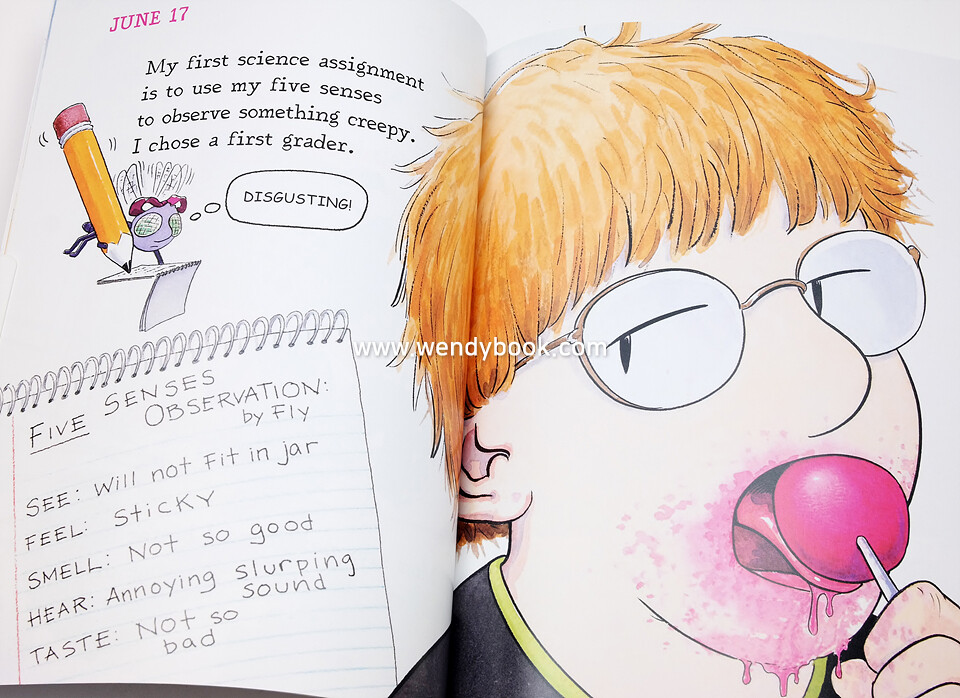 JUNE 17
My first science assignment
is to use my five senses
to observe something creepy.
I chose a first grader.
DISGUSTING!
www.wendybook.com
FIVE SENSES
OBSERVATION:
by Fly
SEE: Will not Fit in jar
FEEL: Sticky
SMELL: Not so good
HEAR: Annoying slurping
sound
TASTE: Not so
bad